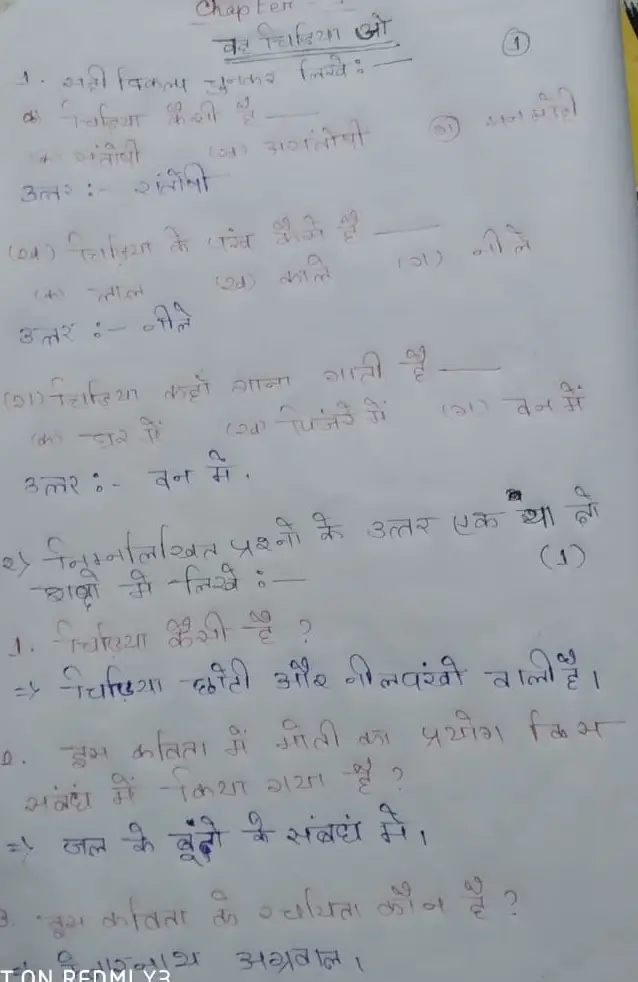 Chapter
वह चिड़िया जो
1
1. सही विकल्प चुनकर लिखे :-
क चिड़िया कैसी है
(क) संतोषी (ख) असंतोषी (ग)
उत्तर :- संतोषी
(ख) चिड़िया के पंख कैसे है
(क) लाल (ख) काले (ग) नीले
उत्तर :- नीले
(ग) चिड़िया कहाँ गाना गाती है
(क) घर में (ख) पिंजरे में (ग) वन में
उत्तर :- वन में.
2) निम्नलिखित प्रश्नो के उत्तर एक या दो
(1)
शब्दो में लिखे :-
1. चिड़िया कैसी है ?
=> चिड़िया छोटी और नीलपंखो वाली है।
2. इस कविता में मोती का प्रयोग किस
संबंध में किया गया है ?
=> जल के बूंदो के संबंध में।
3. इस कविता के रचयिता कौन है ?
=> केदारनाथ अग्रवाल।
T ON REDMI Y3